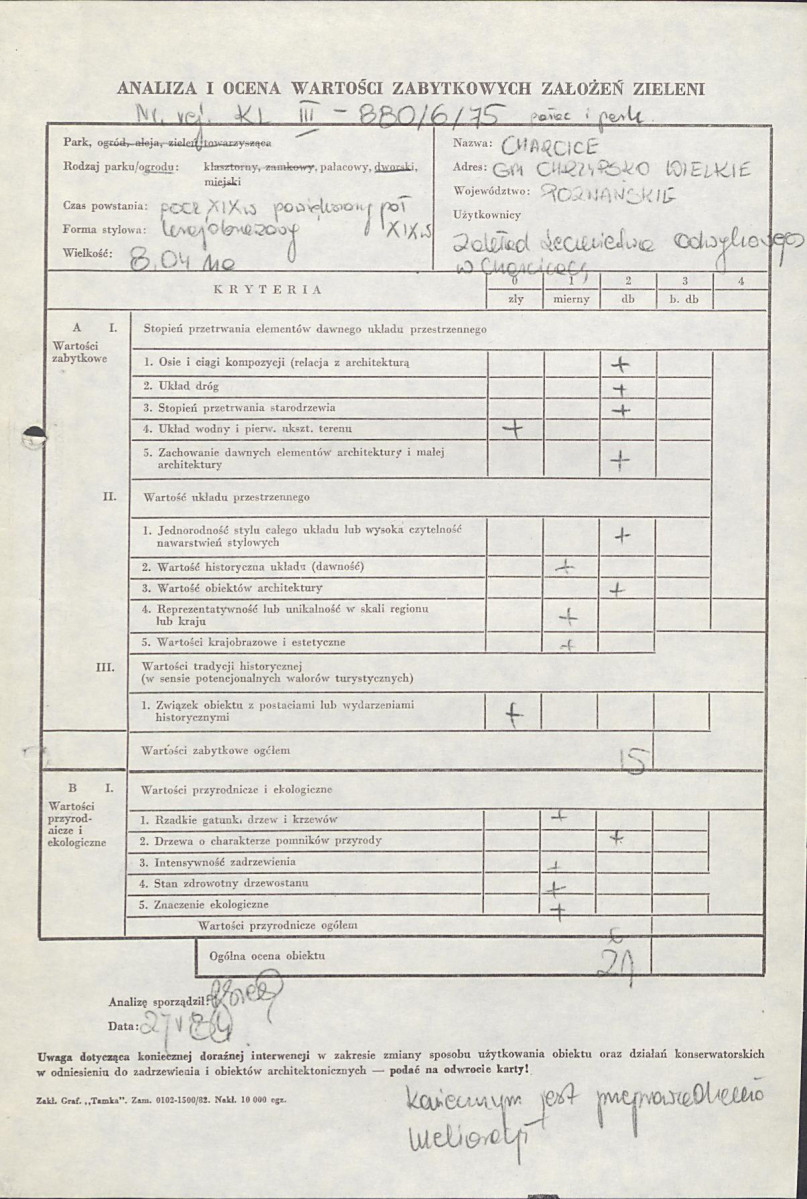 ANALIZA I OCENA WARTOŚCI ZABYTKOWYCH ZAŁOŻEŃ ZIELENI
Nr. rej. KL III - 880/6/75 pałac i park.
Park, ogród, aleja, zieleń towarzysząca
Rodzaj parku/ogrodu: klasztorny, zamkowy, pałacowy, dworski, miejski
Czas powstania: pocz XIX w powiększony poł XIX w
Forma stylowa: krajobrazowy
Wielkość: 8.04 ha
Nazwa: CHARCICE
Adres: GM CHRZYPSKO WIELKIE
Województwo: POZNAŃSKIE
Użytkownicy
Zakład Lecznictwa Odwykowego
w Charcicach
KRYTERIA
0 1 2 3 4
zły mierny db b. db
A I. Stopień przetrwania elementów dawnego układu przestrzennego
Wartości
zabytkowe
1. Osie i ciągi kompozycji (relacja z architekturą +
2. Układ dróg +
3. Stopień przetrwania starodrzewia +
4. Układ wodny i pierw. ukszt. terenu +
5. Zachowanie dawnych elementów architektury i małej
architektury +
II. Wartość układu przestrzennego
1. Jednorodność stylu całego układu lub wysoka czytelność
nawarstwień stylowych +
2. Wartość historyczna układu (dawność) +
3. Wartość obiektów architektury +
4. Reprezentatywność lub unikalność w skali regionu
lub kraju +
5. Wartości krajobrazowe i estetyczne +
III. Wartości tradycji historycznej
(w sensie potencjonalnych walorów turystycznych)
1. Związek obiektu z postaciami lub wydarzeniami
historycznymi +
Wartości zabytkowe ogółem 15
B I. Wartości przyrodnicze i ekologiczne
Wartości
przyrod-
nicze i
ekologiczne
1. Rzadkie gatunki drzew i krzewów +
2. Drzewa o charakterze pomników przyrody +
3. Intensywność zadrzewienia +
4. Stan zdrowotny drzewostanu +
5. Znaczenie ekologiczne +
Wartości przyrodnicze ogółem 6
Ogólna ocena obiektu 21
Analizę sporządził:
Data: 27 V 84
Uwaga dotycząca koniecznej doraźnej interwencji w zakresie zmiany sposobu użytkowania obiektu oraz działań konserwatorskich
w odniesieniu do zadrzewienia i obiektów architektonicznych — podać na odwrocie karty!
Zakł. Graf. „Tamka". Zam. 0102-1500/82. Nakł. 10 000 egz.
Koniecznym jest przeprowadzenie
melioracji